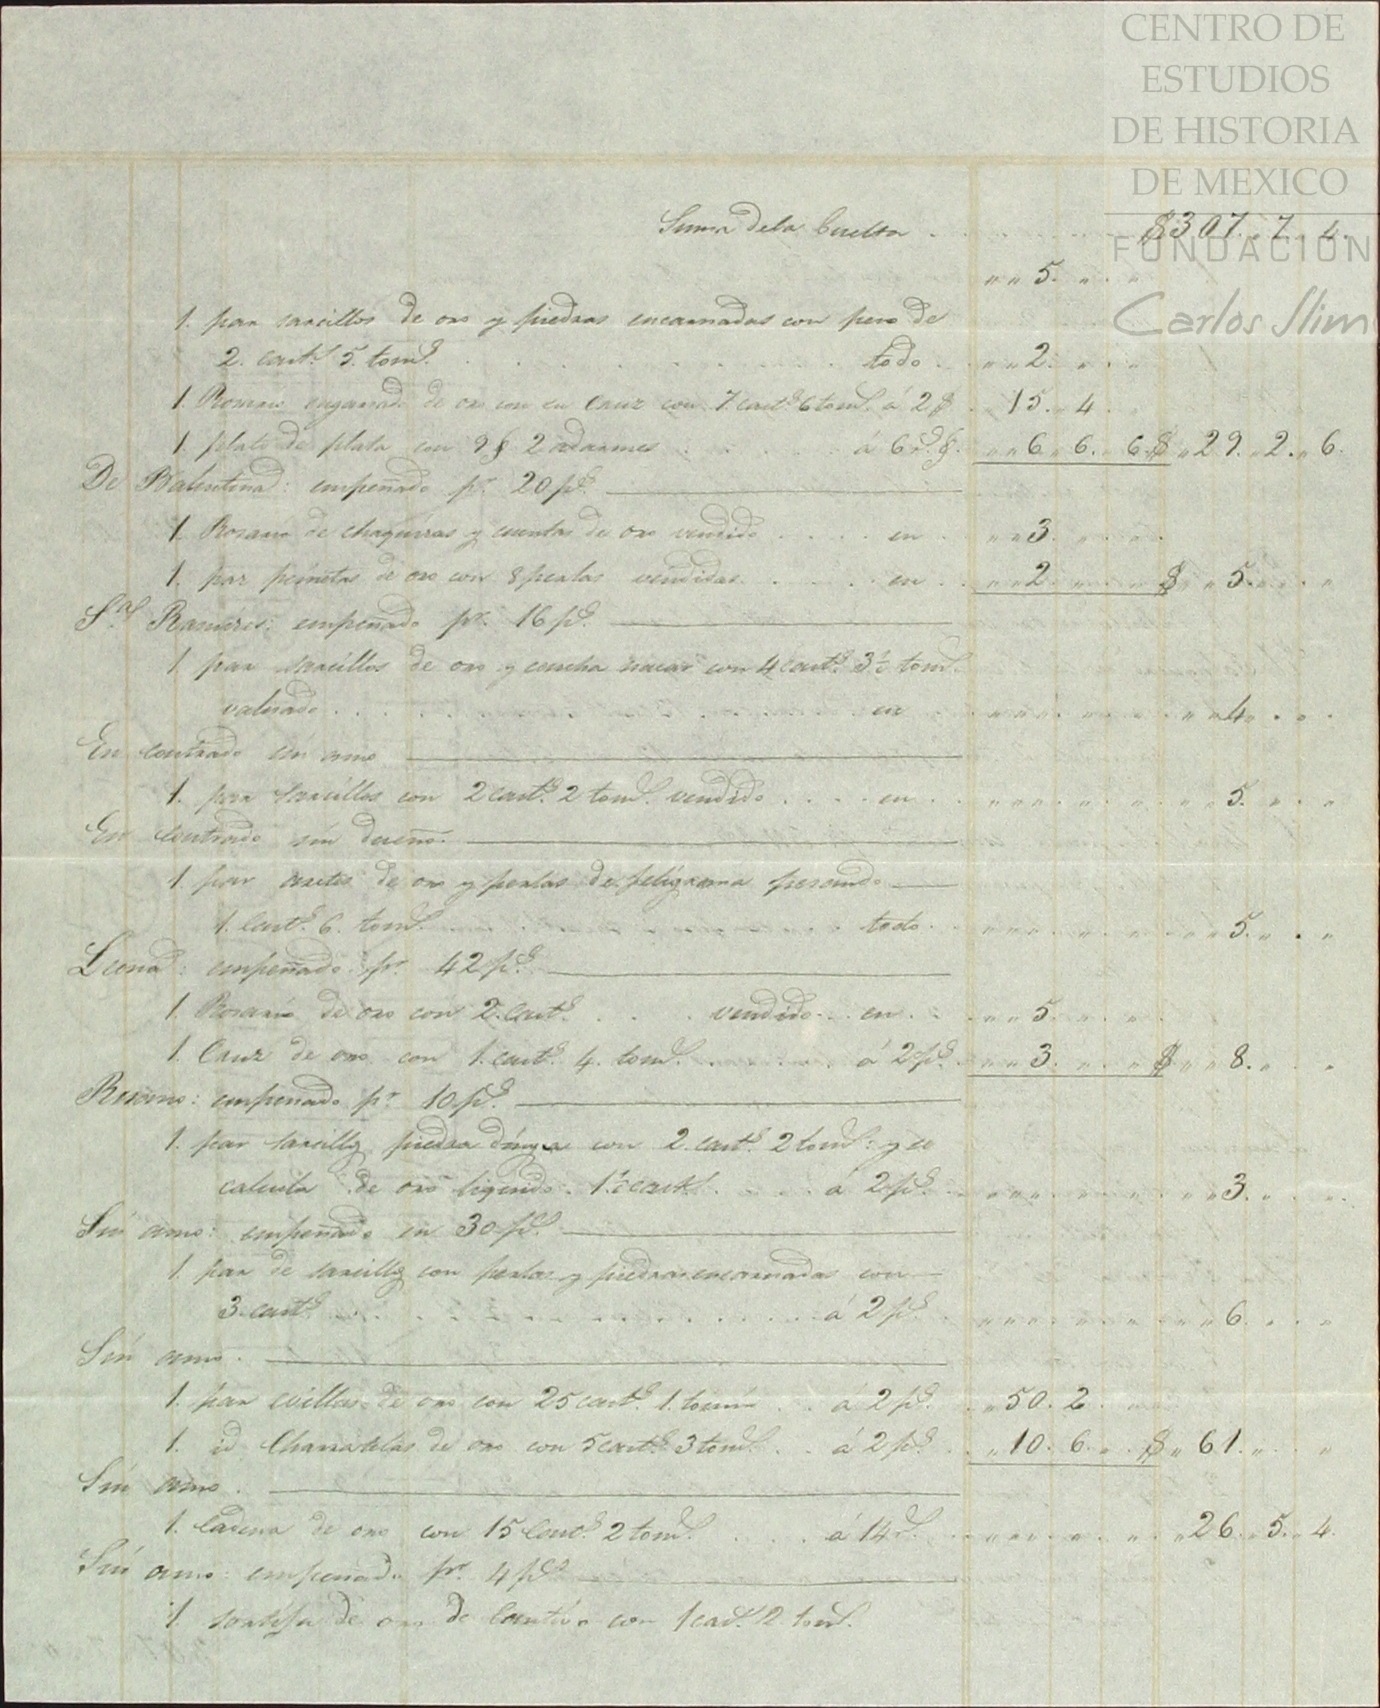 CENTRO DE
ESTUDIOS
DE HISTORIA
DE MEXICO
FUNDACIÓN
Carlos Slim
Suma dela Vuelta . . . $307. 7. 4.
" " 5. " . .
1. par sarcillos de oro y piedras encarnadas con peso de
2. cast.s 5. tom.s . . . todo . " " 2. . . .
1. Rosario engarzado de oro con su Cruz con 7 cast.s 6 tom.s á 2 $ . " 15. " 4.
1. plato de plata con 9 § 2 adarmes . . . á 6 r.s §. " " 6. " 6. " 6. $ " 29. " 2. " 6.
De Balentina: empeñado pr. 20 p.s
1. Rosario de chaquiras y cuentas de oro vendido . . . en . " " 3. . . .
1. par peinetas de oro con 8 perlas vendidas . . . en . . " " 2. . . . $ " " 5. . . "
S.as Ramires: empeñado pr. 16 p.s
1 par sarcillos de oro y concha nacar con 4 cast.s 3½ tom.s
valuado . . . en . . . " " 4. . . .
En contrado sin amo
1. par sarcillos con 2 cast.s 2 tom.s vendido . . . en . . . 5. . . "
En contrado sin dueño.
1 par aretes de oro y perlas de feligrana pesando
1. cast.s 6. tom.s . . . todo . . . " " 5. " . "
empeñado pr. 42 p.s
1. Rosario de oro con 2. cast.s . . . vendido . . en . . " " 5. . . .
1. Cruz de oro con 1. cast.s 4. tom.s . . . á 2 p.s . " " 3. . . . $ " " 8. . . "
empeñado pr. 10 p.s
1. par sarcillos piedra con 2. cast.s 2 tom.s: y
de oro 1½ cast.s . . . á 2 p.s . . . " " 3. . . .
Sin amo: empeñado en 30 p.s
1. par de sarcillos con perlas y piedras encarnadas con
3. cast.s . . . á 2 p.s . . . " " 6. . . "
Sin amo.
1. par evillas de oro con 25 cast.s 1. tomin . . á 2 p.s . " 50. 2.
1. id Charratelas de oro con 5 cast.s 3 tom.s . . á 2 p.s . " 10. 6. . . $ " 61. . . "
Sin amo.
1. Cadena de oro con 15 Cast.s 2 tom.s . . . á 14 r.s . . . " 26. " 5. " 4.
Sin amo: empeñado pr. 4 p.s
1 sortija de oro de con 1 cast. 2. tom.s